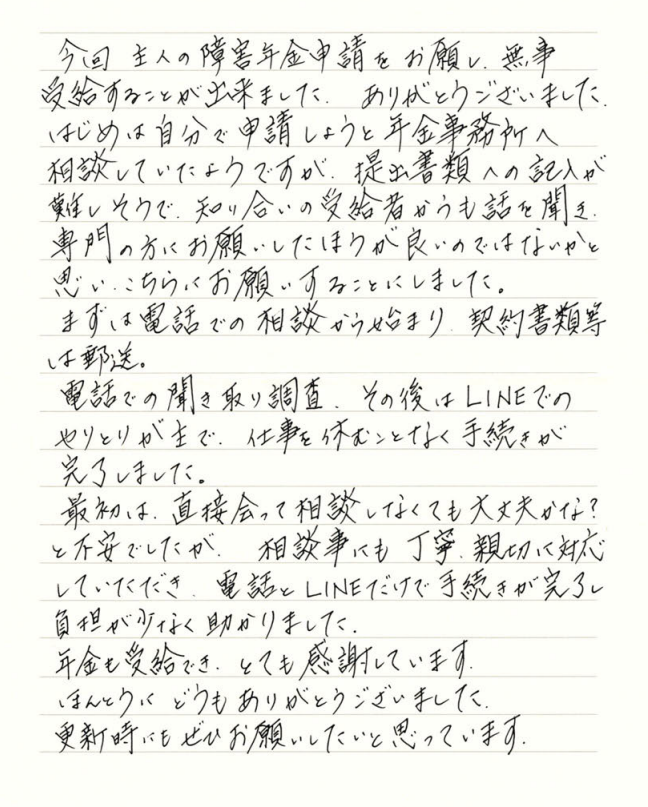 今回 主人の障害年金申請をお願いし、無事
受給することが出来ました。 ありがとうございました。
はじめは自分で申請しようと年金事務所へ
相談していたようですが、提出書類への記入が
難しそうで、知り合いの受給者からも話を聞き、
専門の方にお願いしたほうが良いのではないかと
思い、こちらにお願いすることにしました。
まずは電話での相談から始まり、契約書類等
は郵送。
電話での聞き取り調査、その後はLINEでの
やりとりが主で、仕事を休むことなく手続きが
完了しました。
最初は、直接会って相談しなくても大丈夫かな?
と不安でしたが、 相談事にも丁寧、親切に対応
していただき、電話とLINEだけで手続きが完了し
負担が少なく助かりました。
年金も受給でき、とても感謝しています。
ほんとうに どうもありがとうございました。
更新時にもぜひお願いしたいと思っています。